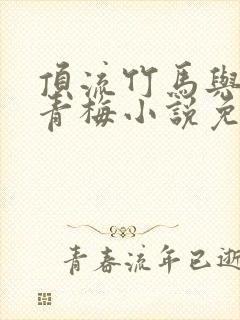 頂流竹馬與
青梅小說免
青春流年已逝